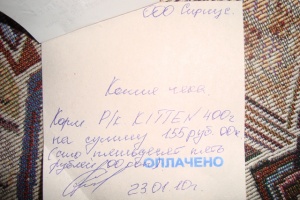 ООО Сириус.
Копия чека.
Корм P/k KITTEN 400г
на сумму 155 руб. 00к
(сто пятьдесят пять
рублей 00 коп)
ОПЛАЧЕНО
23.01.10г.